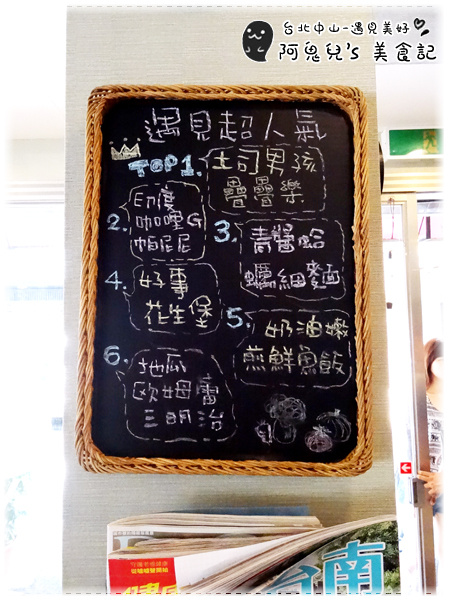 台北中山-遇見美好
阿鬼兒's 美食記
遇見超人氣
TOP 1.
土司男孩
疊疊樂
2.
印度
咖哩G
帕尼尼
3.
青醬蛤
蠣細麵
4.
好事
花生堡
5.
奶油嫩
煎鮮魚飯
6.
地瓜
歐姆雷
三明治
台南